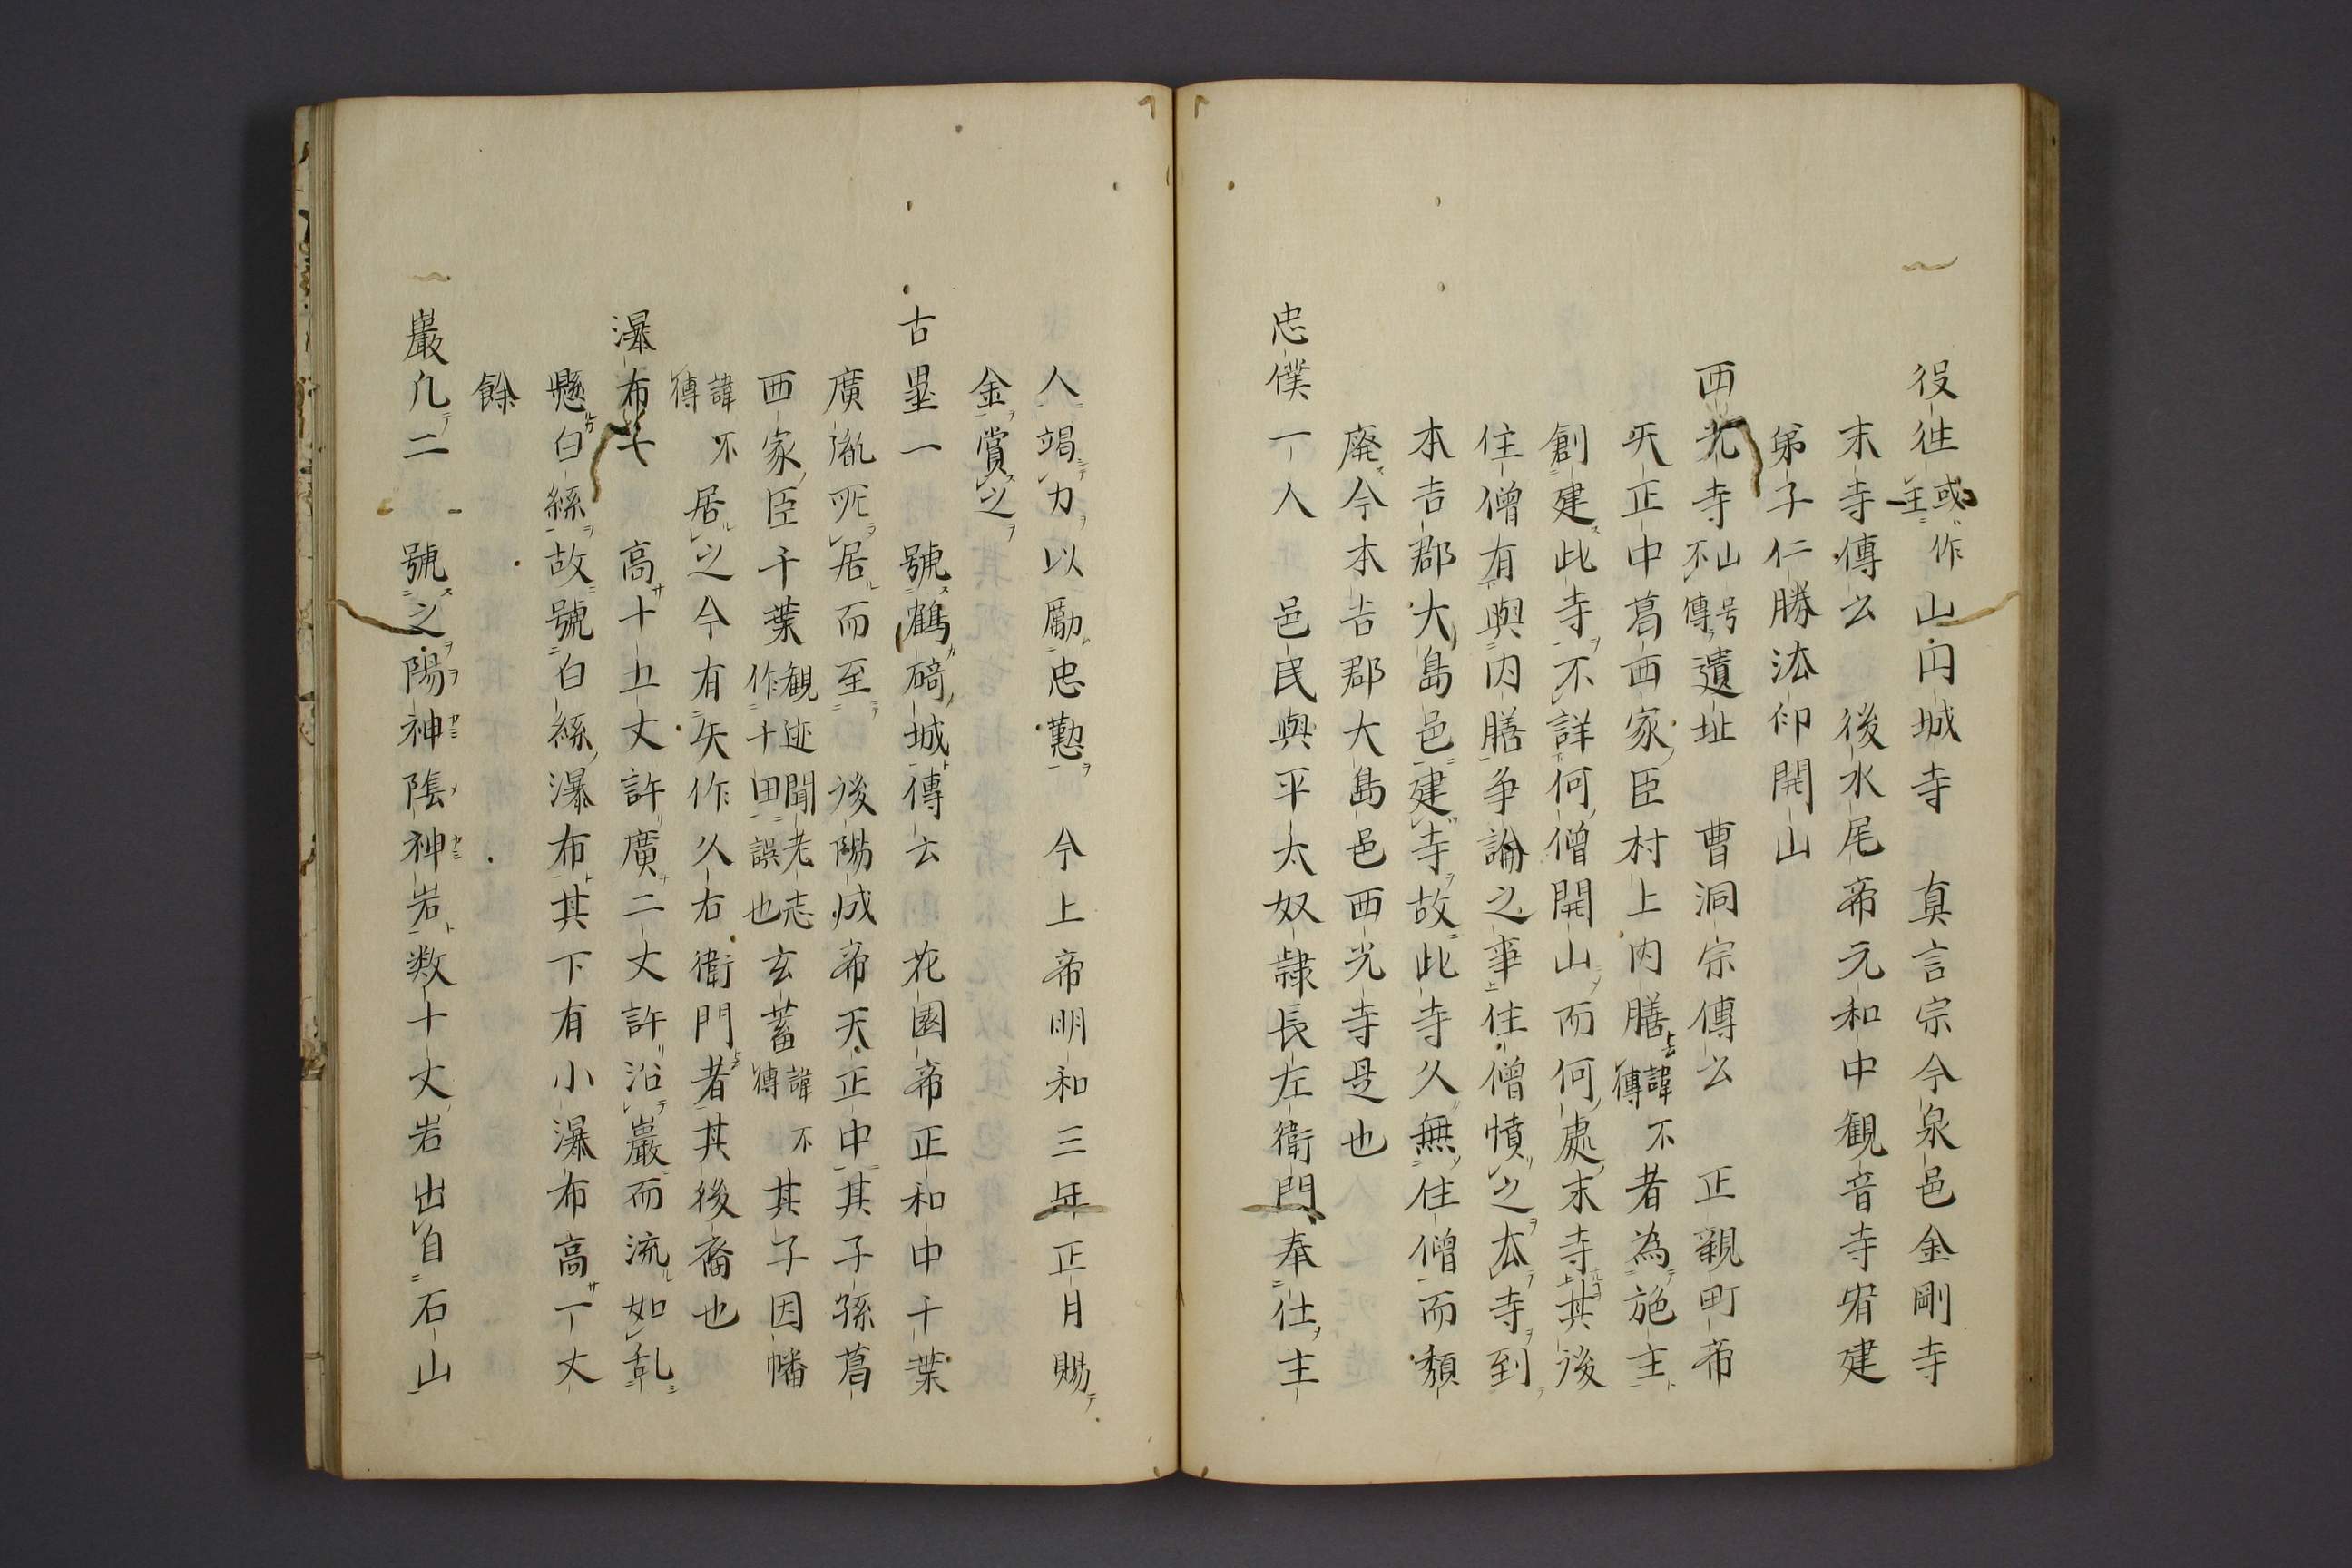 役徃或作主山円城寺 真言宗今泉邑金剛寺
末寺傳云 後水尾帝元和中観音寺宥建
弟子仁勝法印開山
西光寺山号不傳遺址 曹洞宗傳云 正親町帝
天正中葛西家臣村上内膳諱不傳者為施主
創建此寺不詳何僧開山而何處末寺其後
住僧有與内膳争論之事住僧憤之去寺到
本吉郡大島邑建寺故此寺久無住僧而頽
廃今本吉郡大島邑西光寺是也
忠僕一人 邑民與平太奴隷長左衛門奉仕主
人竭力以励忠懃 今上帝明和三年正月賜
金賞之
古塁一 號鶴𥔎城傳云 花園帝正和中千葉
廣胤所居而至 後陽成帝天正中其子孫葛
西家臣千葉観迹聞老志作十田誤也玄蓄諱不傳其子因幡
諱不傳居之今有矢作久右衛門者其後裔也
瀑布七 高十五丈許廣二丈許沿巖而流如乱
懸白絲故號白絲瀑布其下有小瀑布高一丈
餘
巖凡二 一號之陽神陰神岩数十丈岩出自石山